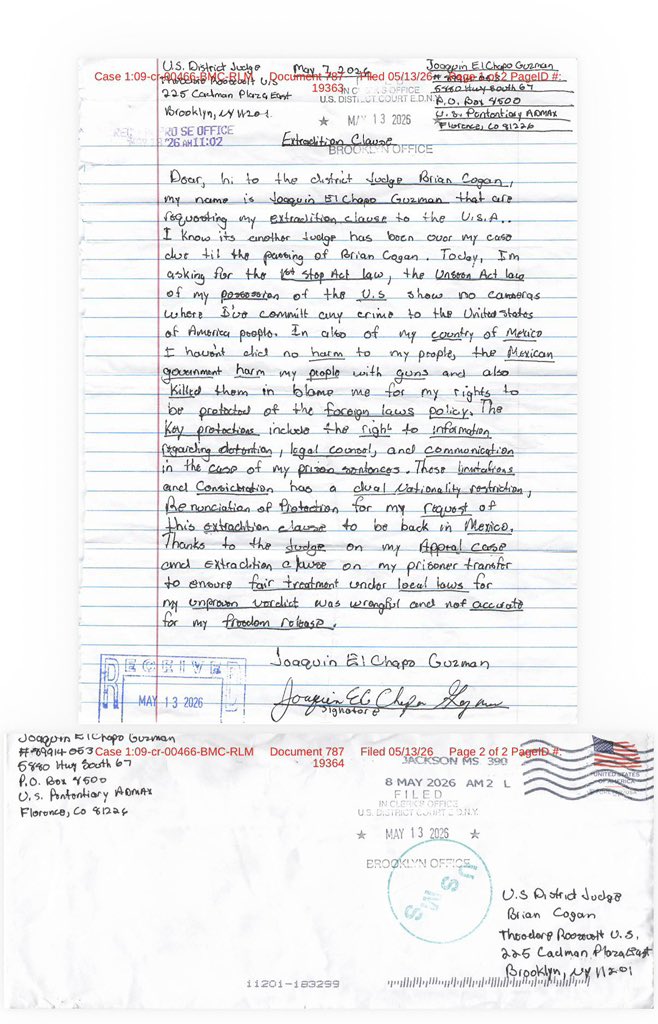 U.S. District Judge
Theodore Roosevelt U.S
225 Cadman Plaza East
Brooklyn, NY 11201
May 7, 2026
Joaquin ElChapo Guzman
5880 Hwy South 67
P.O. Box 8500
U.S. Pentontiary ADMAX
Florence, Co 81226
Case 1:09-cr-00466-BMC-RLM Document 787 Filed 05/13/26 Page 1 of 2 PageID #:
19363
U.S. DISTRICT COURT E.D.N.Y.
★ MAY 13 2026
BROOKLYN OFFICE
PRO SE OFFICE
'26 AM11:02
Extradition Clause
Dear, hi to the district Judge Brian Cogan,
my name is Joaquin ElChapo Guzman that are
requosting my extradition clause to the U.S.A..
I know its another Judge has been over my case
due til the passing of Brian Cogan. Today, I'm
asking for the 1st Stop Act law, the Unseen Act law
of my possession of the U.S show no cameras
where I've committ any crime to the United States
of America people. In also of my country of Mexico
I haven't did no harm to my people, the Mexican
government harm my people with guns and also
killed them in blame me for my rights to
be protected of the foreign laws policy. The
Key protections include the right to information
regarding detention, legal counsel, and communication
in the case of my prison sentences. These limitations
and Consideration has a dual Nationality restriction,
Renunciation of Protection for my request of
this extradition clause to be back in Mexico.
Thanks to the Judge on my Appeal case
and extradition clause on my prisoner transfer
to ensure fair treatment under local laws for
my unproven verdict was wrongful and not accurate
for my freedom release.
Joaquin ElChapo Guzman
Signature
RECEIVED
MAY 13 2026
Joaquin ElChapo Guzman
#89914053
5880 Hwy South 67
P.O. Box 8500
U.S. Pontontiary ADMAX
Florence, Co 81226
Case 1:09-cr-00466-BMC-RLM Document 787 Filed 05/13/26 Page 2 of 2 PageID #:
19364
JACKSON MS 390
8 MAY 2026 AM 2 L
FILED
IN CLERK'S OFFICE
U.S. DISTRICT COURT E.D.N.Y.
★ MAY 13 2026 ★
BROOKLYN OFFICE
USMS
UNITED STATES
OF AMERICA
U.S District Judge
Brian Cogan
Theodore Roosevelt U.S.
225 Cadman Plaza East
Brooklyn, NY 11201
11201-183299